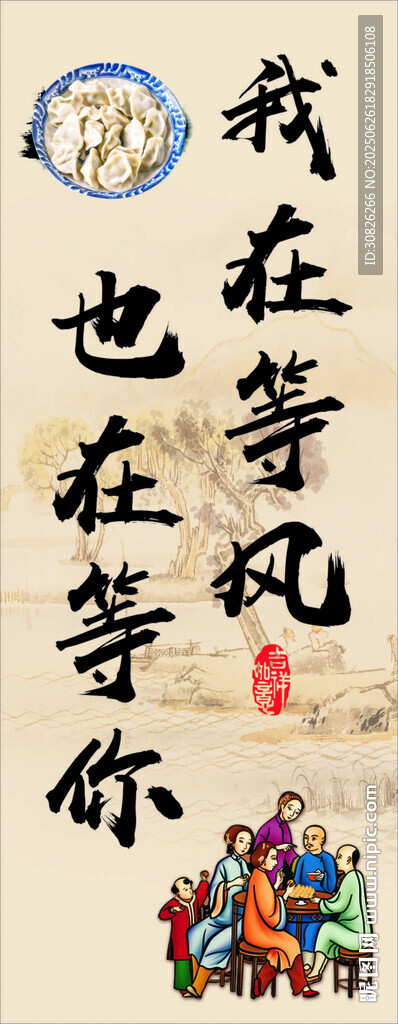 我在等风
也在等你
吉祥如意
ID:30826266 NO:20250626182918506108
昵图网 www.nipic.com